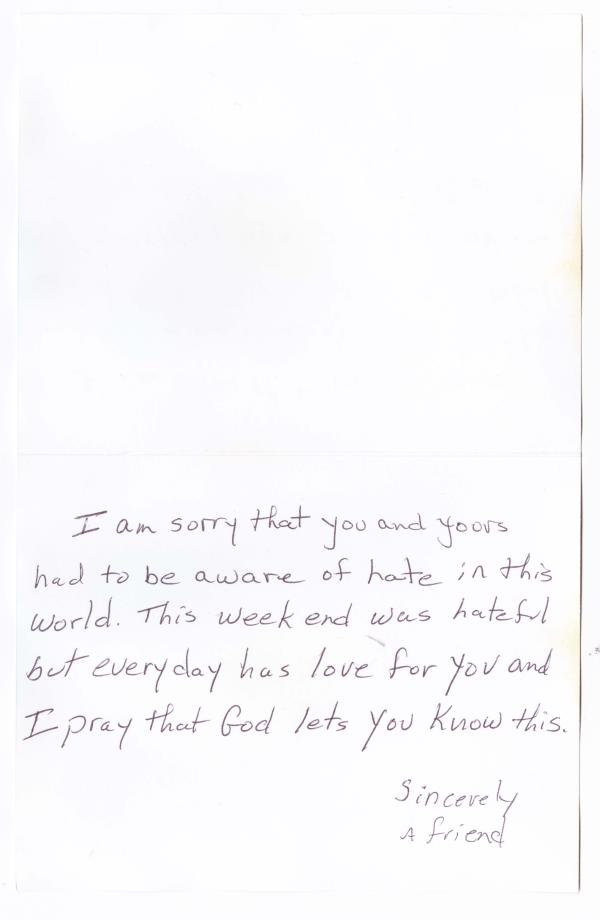 I am sorry that you and yours
had to be aware of hate in this
world. This week end was hateful
but everyday has love for you and
I pray that God lets you know this.
Sincerely
A friend